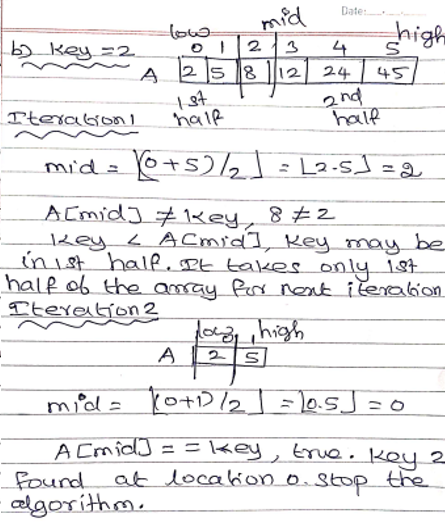 Date:
low mid high
b) Key = 2 0 1 2 3 4 5
A 2 5 8 12 24 45
1st half 2nd half
Iteration1
mid = ⌊(0+5)/2⌋ = ⌊2.5⌋ = 2
A[mid] ≠ key, 8 ≠ 2
key < A[mid], key may be
in 1st half. It takes only 1st
half of the array for next iteration
Iteration 2
low, high
A 2 5
mid = ⌊(0+1)/2⌋ = ⌊0.5⌋ = 0
A[mid] == key, true. key 2
found at location 0. Stop the
algorithm.